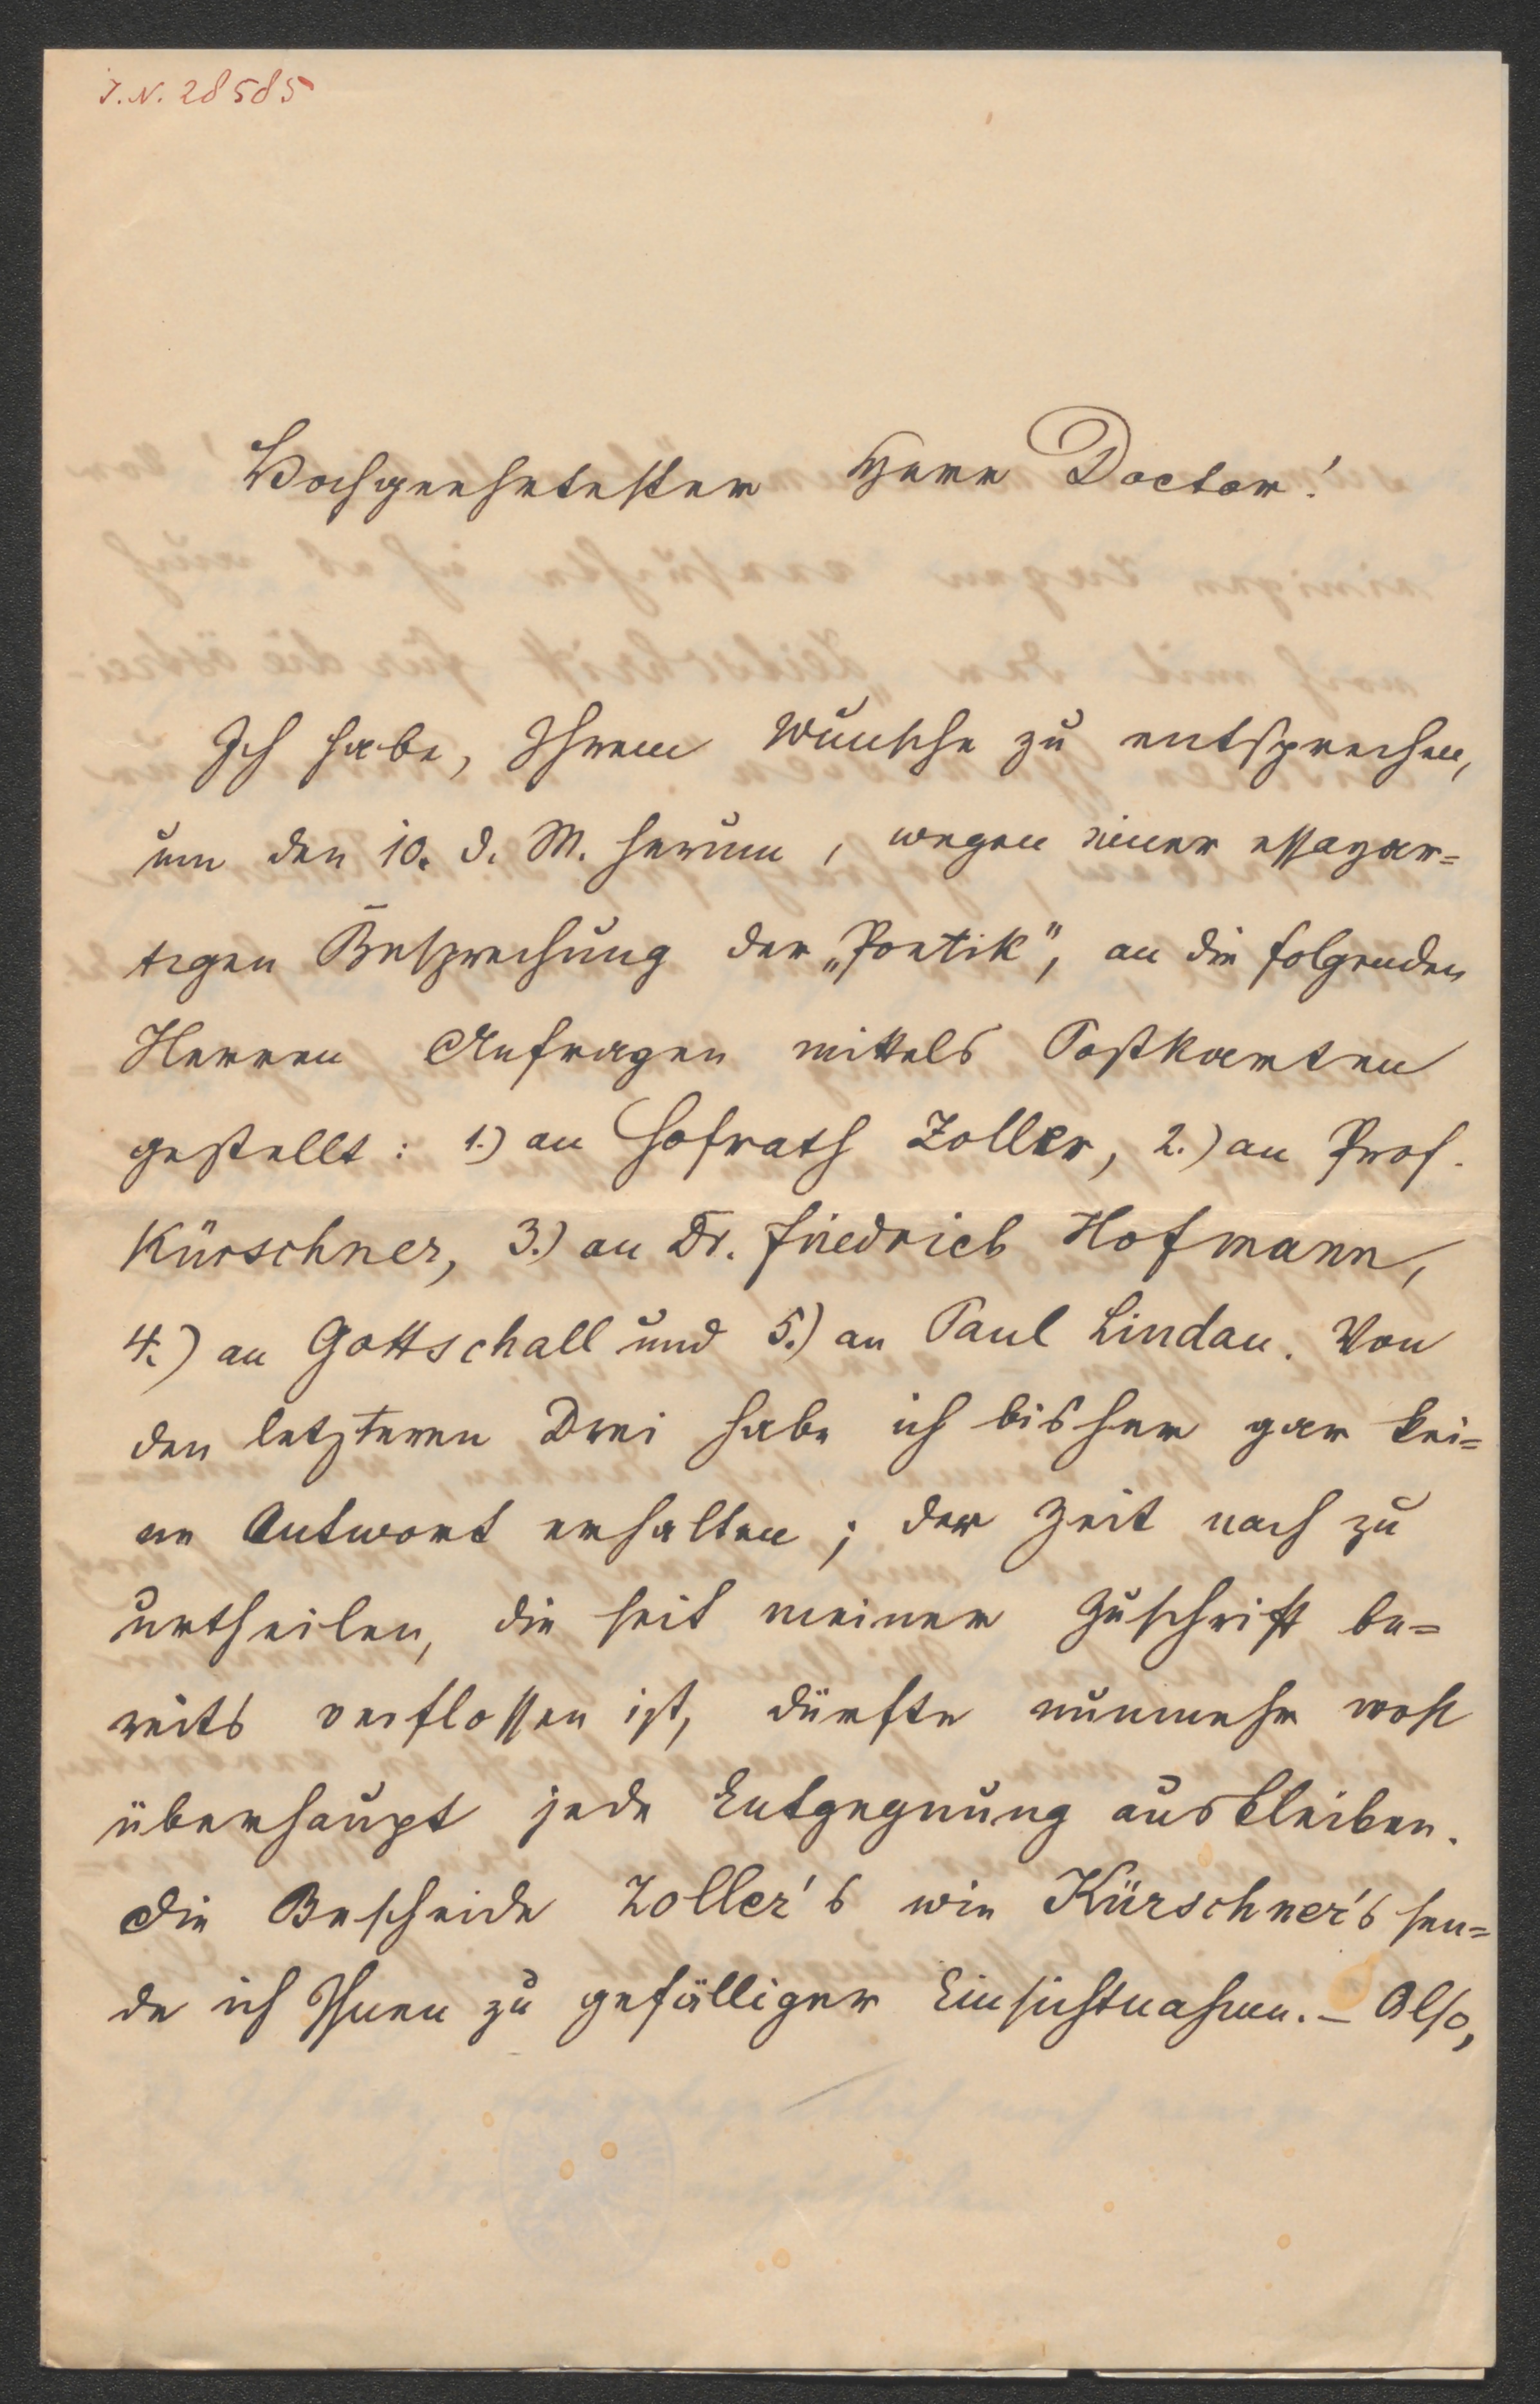 J. N. 28585
Hochgeehrtester Herr Doctor!
Ich habe, Ihrem Wunsche zu entsprechen,
um den 10. d. M. herum, wegen einer essayar-
tigen Besprechung der „Poetik", an die folgenden
Herren Anfragen mittels Postkarten
gestellt: 1.) an Hofrath Zoller, 2.) an Prof.
Kürschner, 3.) an Dr. Friedrich Hofmann,
4.) an Gottschall und 5.) an Paul Lindau. Von
den letzteren Drei habe ich bisher gar kei=
ne Antwort erhalten; der Zeit nach zu
urtheilen, die seit meiner Zuschrift be=
reits verflossen ist, dürfte nunmehr wohl
überhaupt jede Entgegnung ausbleiben.
Die Bescheide Zoller's wie Kürschner's sen=
de ich Ihnen zu gefälliger Einsichtnahme. – Also,